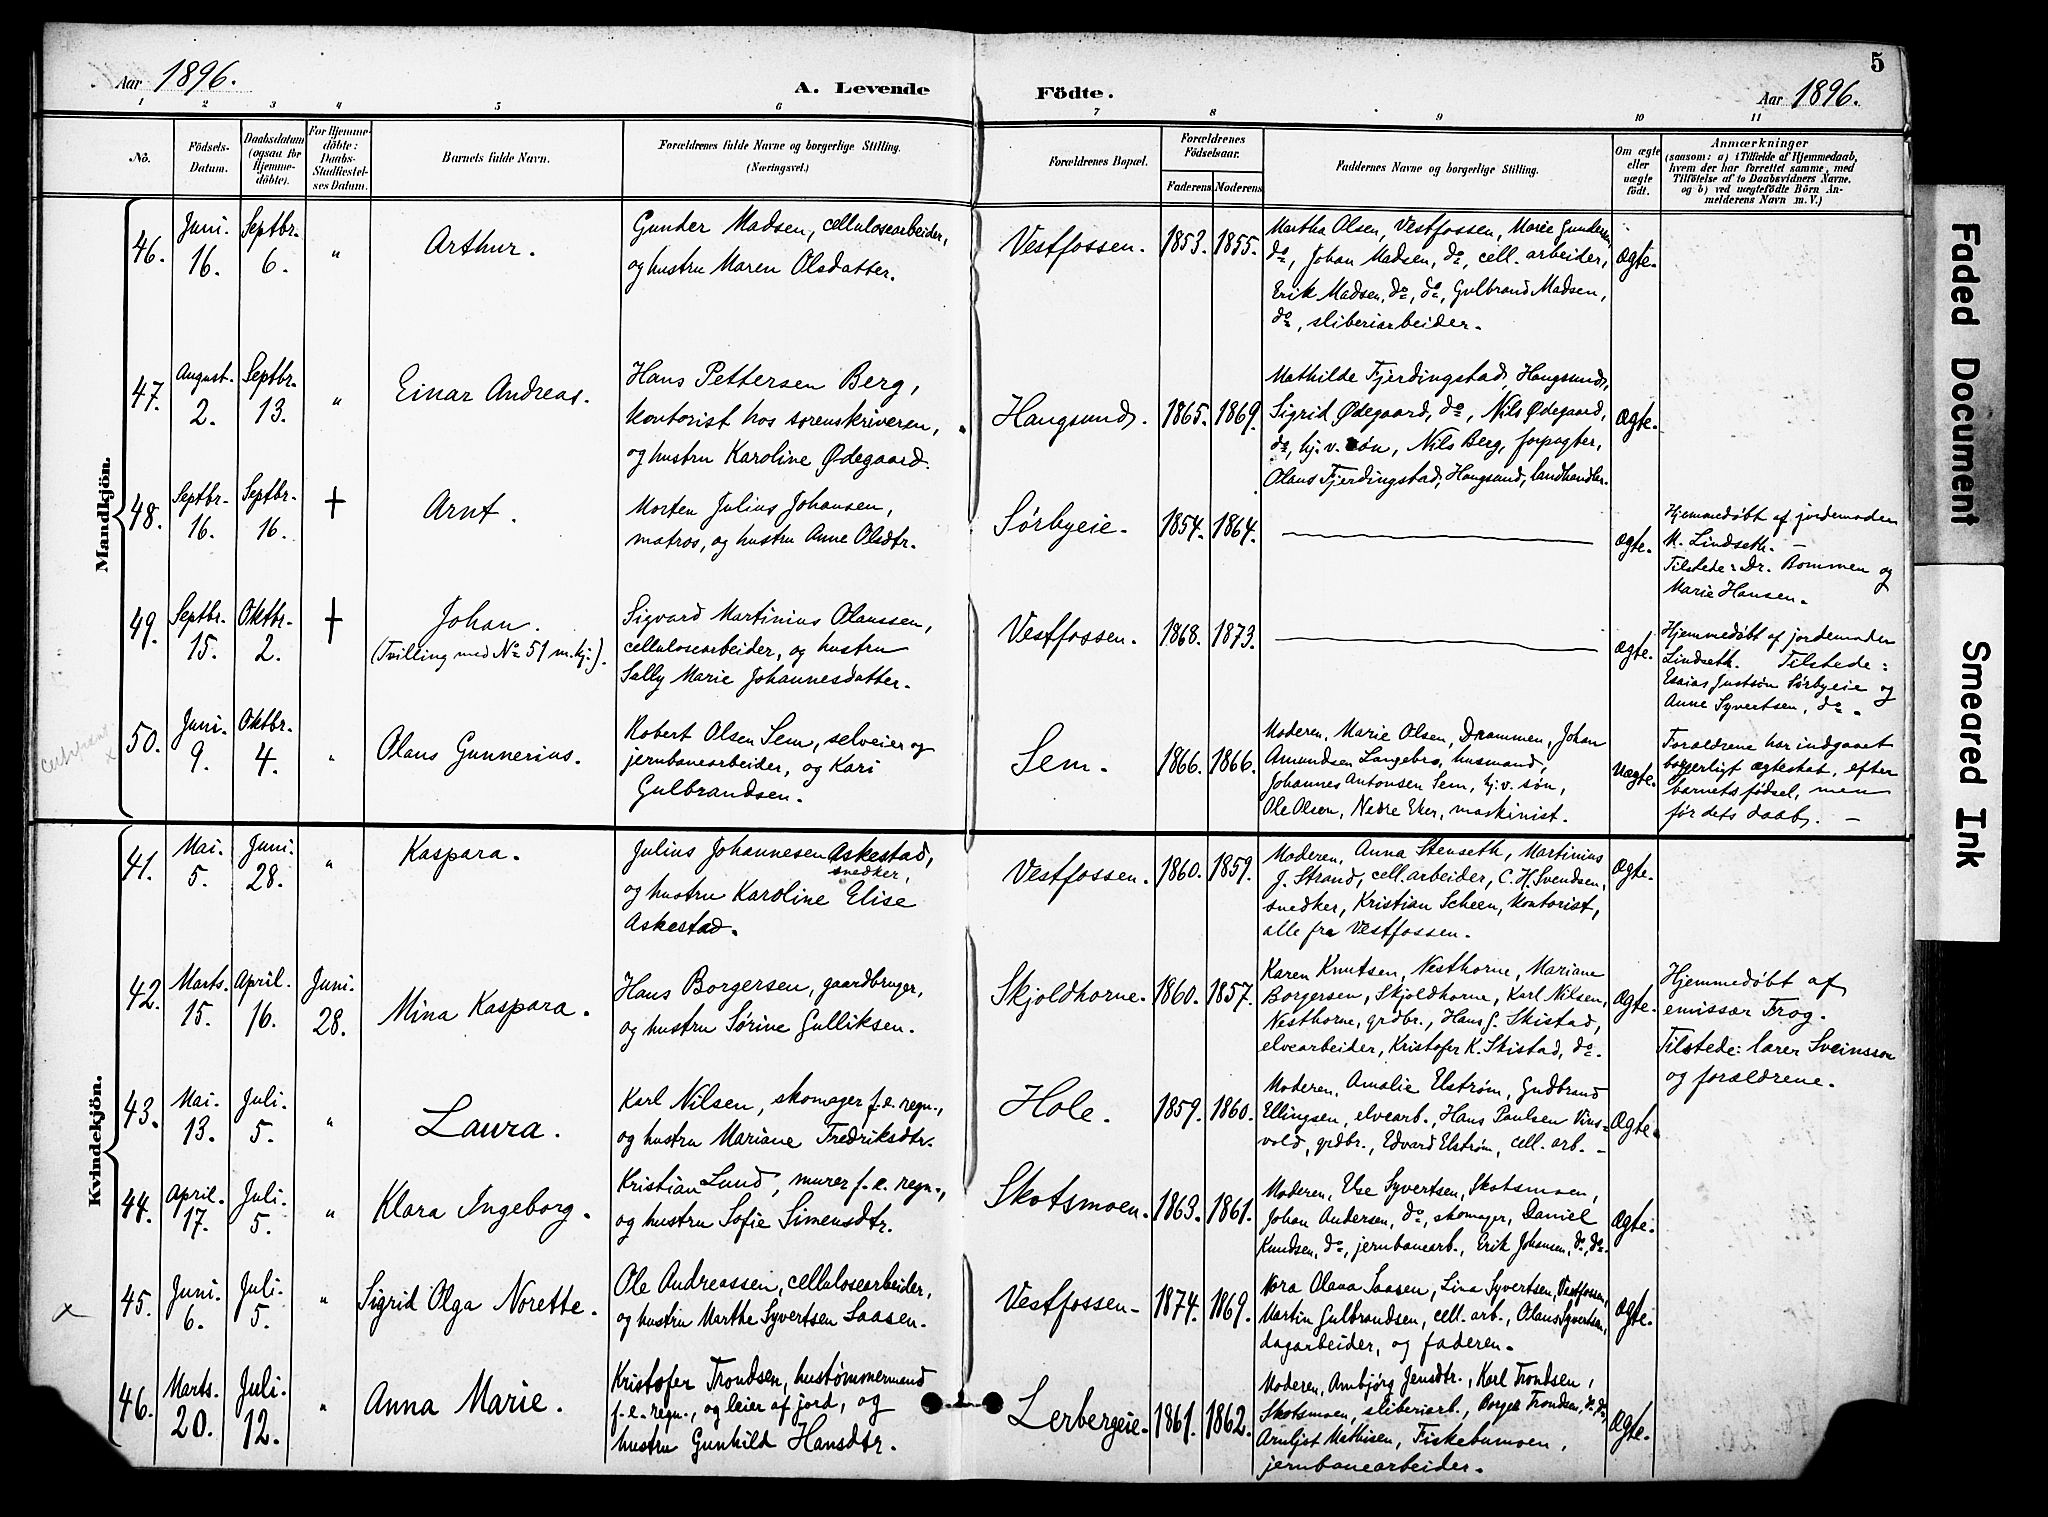 5
Aar 1896. A. Levende Födte. Aar 1896.
1 2 3 4 5 6 7 8 9 10 11
No. Födsels-Datum. Daabsdatum (ogsaa for Hjemmedöbte). For Hjemmedöbte: Daabs-Stadfæstelses Datum. Barnets fulde Navn. Forældrenes fulde Navne og borgerlige Stilling. (Næringsvei.) Forældrenes Bopæl. Forældrenes Födselsaar. Faderens Moderens Faddernes Navne og borgerlige Stilling. Om ægte eller uægte födt. Anmærkninger
(saasom: a) i Tilfælde af Hjemmedaab,
hvem der har forrettet samme, med
Tilföielse af to Daabsvidners Navne.
og b) ved uægtefödte Börn An-
melderens Navn m. V.)
Mandkjön.
46. Juni. 16. Septbr. 6. " Arthur.
Gunder Madsen, cellulosearbeider,
og hustru Maren Olsdatter.
Vestfossen. 1853. 1855.
Martha Olsen, Vestfossen, Marie Gundersen,
do, Johan Madsen, do, cell. arbeider,
Erik Madsen, do, do, Gulbrand Madsen,
do, sliberiarbeider.
Ægte.
47. August. 2. Septbr. 13. " Einar Andreas.
Hans Pettersen Berg,
kontorist hos sorenskriveren,
og hustru Karoline Ødegaard.
Haugsund. 1865. 1869.
Mathilde Fjerdingstad, Haugsund,
Sigrid Ødegaard, do, Nils Ødegaard,
do, hj. v. søn, Nils Berg, forpagter,
Olaus Fjerdingstad, Haugsund, landhandler.
Ægte.
48. Septbr. 16. Septbr. 16. + Arnt.
Morten Julius Johansen,
matros, og hustru Anne Olsdtr.
Sørbyeie. 1854. 1864.
Ægte.
Hjemmedøbt af jordemoder
M. Lindseth.
Tilstede: Dr. Bommen og
Marie Hansen.
49. Septbr. 15. Oktbr. 2. + Johan.
(Tvilling med No 51 m. kj.).
Sigvard Martinius Olaussen,
cellulosearbeider, og hustru
Sally Marie Johannesdatter.
Vestfossen. 1868. 1873.
Ægte.
Hjemmedøbt af jordemoder
Lindseth. Tilstede:
Esaias Justsøn Sørbyeie og
Anne Syvertsen, do.
50. Juni. 9. Oktbr. 4. " Olaus Gunnerius.
Robert Olsen Sem, selveier og
jernbanearbeider, og Kari
Gulbrandsen.
Sem. 1866. 1866.
Moderen, Marie Olsen, Drammen, Johan
Amundsen Langebro, husmand,
Johannes Antonsen Sem, hj. v. søn,
Ole Olsen, Nedre Eker, maskinist.
Uægte.
Forældrene har indgaaet
borgerligt ægteskab, efter
barnets fødsel, men
før dets daab.
Kvindekjön.
41. Mai. 5. Juni. 28. " Kaspara.
Julius Johannesen Askestad,
snedker,
og hustru Karoline Elise
Askestad.
Vestfossen. 1860. 1859.
Moderen, Anna Stenseth, Martinius
J. Strand, cell. arbeider, C. H. Svendsen,
snedker, Kristian Scheen, kontorist,
alle fra Vestfossen.
Ægte.
42. Marts. 15. April. 16. Juni. 28. Mina Kaspara.
Hans Borgersen, gaardbruger,
og hustru Sørine Gulliksen.
Skjoldhorne. 1860. 1857.
Karen Knutsen, Nesthorne, Mariane
Borgersen, Skjoldhorne, Karl Nilsen,
Nesthorne, grdbr., Hans G. Skistad,
elvearbeider, Kristofer K. Skistad, do.
Ægte.
Hjemmedøbt af
emissær Frog.
Tilstede: lærer Sveinsson
og forældrene.
43. Mai. 13. Juli. 5. " Laura.
Karl Nilsen, skomager f. e. regn.,
og hustru Mariane Fredriksdtr.
Hole. 1859. 1860.
Moderen, Amalie Elstrøm, Gudbrand
Ellingsen, elvearb., Hans Paulsen Vins-
vold, grdbr., Edvard Elstrøm, cell. arb.
Ægte.
44. April. 17. Juli. 5. " Klara Ingeborg.
Kristian Lund, murer f. e. regn.,
og hustru Sofie Simensdtr.
Skotsmoen. 1863. 1861.
Moderen, Else Syvertsen, Skotsmoen,
Johan Andersen, do, skomager, Daniel
Knudsen, do, jernbanearb., Erik Johansen, do, do.
Ægte.
45. Juni. 6. Juli. 5. " Sigrid Olga Norette.
Ole Andreassen, cellulosearbeider,
og hustru Marthe Syvertsen Saasen.
Vestfossen. 1874. 1869.
Nora Olava Saasen, Lina Syvertsen, Vestfossen,
Martin Gulbrandsen, cell. arb., Olaus Syvertsen,
dagarbeider, og faderen.
Ægte.
46. Marts. 20. Juli. 12. " Anna Marie.
Kristofer Trondsen, hustømmermand
f. e. regn., og leier af jord, og
hustru Gunhild Hansdtr.
Lerbergeie. 1861. 1862.
Moderen, Ambjørg Jensdtr., Karl Trondsen,
Skotsmoen, sliberiarb., Borger Trondsen, do, do,
Arnljot Mathisen, Fiskebumoen,
jernbanearbeider.
Ægte.
Faded Document
Smeared Ink